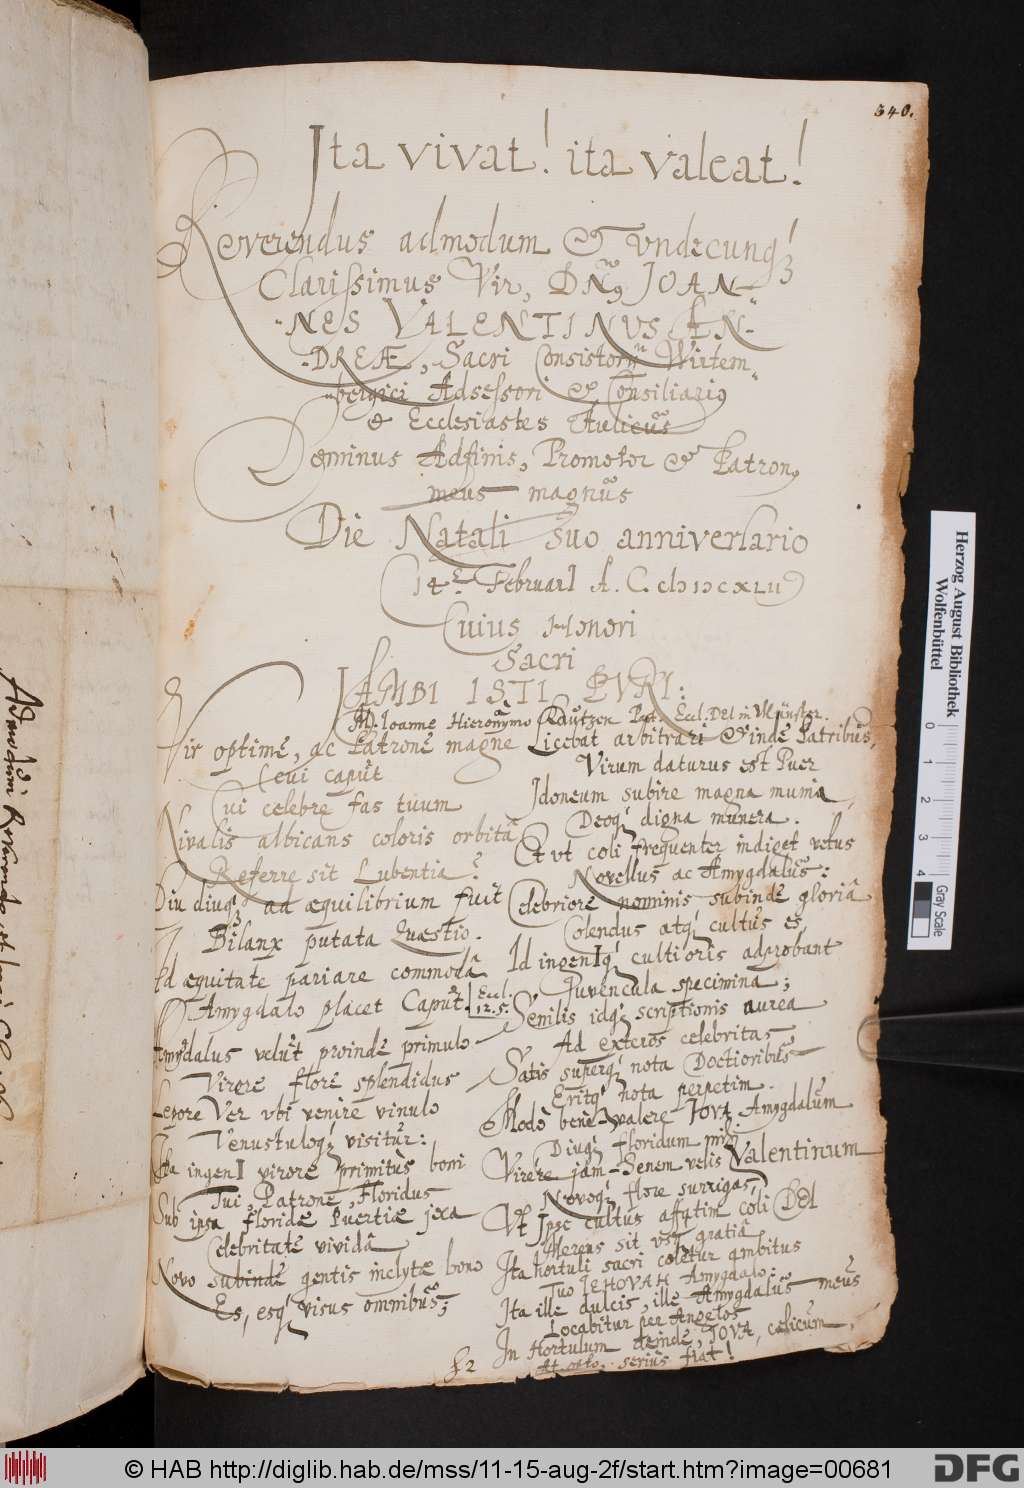 340.
Ita vivat! ita valeat!
Reverendus admodum & undecunq;
Clarissimus Vir, Dn9 JOAN-
NES VALENTINUS AN-
DREÆ, Sacri Consistorii Wirtem
bergici Adsessor & Consiliari9
& Ecclesiastes Aulicus
Dominus Adfinis, Promotor & Patron9
meus magnus
Die Natali suo anniversario
Februarj A. C.
Cuius Honori
Sacri
IAMBI ISTI PURI:
M. Joanne Hieronymo Past. Eccl. Dei in Münster.
Vir optime, ac Patrone magne
Cui celebre fas tuum
Nivalis albicans coloris orbitâ
Referre sit Lubentia?
Diu diuq; ad æquilibrium fuit
Bilanx putata Quæstio.
Id æquitate pariare commodâ
Amygdalo placet Caput. Eccl. 12.5.
Amygdalus velut proinde primulo
Virore flore splendidus
Lepore Ver ubi venire vinulo
Venustuloq; visitur:
Ita ingenI virore primitùs boni
Tui, Patrone, Floridus
Sub ipsa floridæ Puertiæ
Celebritate vividâ
Novo subinde gentis inclytæ bono
Es, esq; visus omnibus;
Licebat arbitrari & inde Patribus,
Virum daturus est Puer
Idoneum subire magna munia,
Deoq; digna munera.
Et ut coli frequenter indiget vetus
Novellus ac Amygdalus:
Celebriore nominis subinde gloriâ
Colendus atq; cultus es,
Id ingenIq; cultioris adprobant
Juvencula specimina;
Senilis idq; scriptionis aurea
Ad exteros celebritas
Satis superq; nota Doctioribus
Eritq; nota perpetim.
Modò benè valere JOVA, Amygdalum
Diuq; floridum
Virere jam-Senem velis Valentinum
Novoq; flore surrigas,
Ut Ipse cultus affatim coli DEI
Merens sit usq; gratiâ
Ita hortuli sacri coletur ambitus
Tuo JEHOVAH Amygdalo:
Ita ille dulcis, ille Amygdalus meus
Locabitur per Angelos
In Hortulum deinde, JOVA, cœlicum,
At, oro, serius fiat!
Herzog August Bibliothek
Wolfenbüttel
0 1 2 3 4
Gray Scale
© HAB http://diglib.hab.de/mss/11-15-aug-2f/start.htm?image=00681
DFG